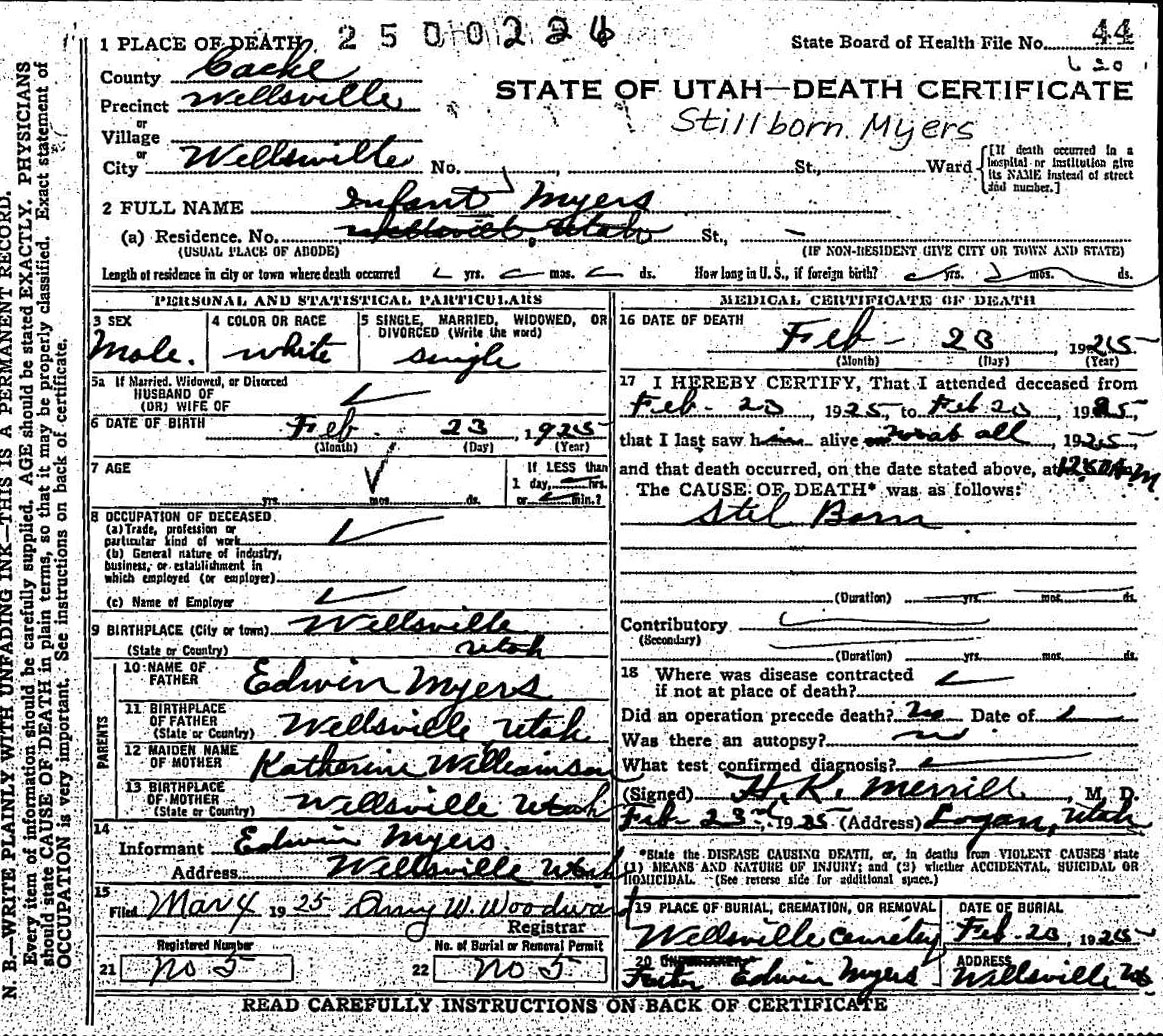 2500226
State Board of Health File No. 44
620
1 PLACE OF DEATH
County Cache
STATE OF UTAH—DEATH CERTIFICATE
Precinct Wellsville
or
Village
Stillborn Myers
or
City Wellsville No. St., Ward [If death occurred in a hospital or institution give its NAME instead of street and number.]
2 FULL NAME Infant Myers
(a) Residence. No. Wellsville, Utah St.,
(USUAL PLACE OF ABODE) (IF NON-RESIDENT GIVE CITY OR TOWN AND STATE)
Length of residence in city or town where death occurred yrs. mos. ds. How long in U. S., if foreign birth? yrs. mos. ds.
PERSONAL AND STATISTICAL PARTICULARS
3 SEX Male.
4 COLOR OR RACE white
5 SINGLE, MARRIED, WIDOWED, OR DIVORCED (Write the word) single
5a If Married, Widowed, or Divorced
HUSBAND OF
(OR) WIFE OF
6 DATE OF BIRTH Feb. 23 1925
(Month) (Day) (Year)
7 AGE
yrs. mos. ds.
If LESS than
1 day, hrs.
or min.?
8 OCCUPATION OF DECEASED
(a) Trade, profession or
particular kind of work
(b) General nature of industry,
business, or establishment in
which employed (or employer)
(c) Name of Employer
9 BIRTHPLACE (City or town) Wellsville
(State or Country) Utah
PARENTS
10 NAME OF
FATHER Edwin Myers
11 BIRTHPLACE
OF FATHER
(State or Country) Wellsville Utah
12 MAIDEN NAME
OF MOTHER Katherine Williamson
13 BIRTHPLACE
OF MOTHER
(State or Country) Wellsville Utah
14
Informant Edwin Myers
Address Wellsville Utah
15
Filed Mar 4 1925 Amy W. Woodward
Registrar
Registered Number
21 No 5
No. of Burial or Removal Permit
22 No 5
MEDICAL CERTIFICATE OF DEATH
16 DATE OF DEATH
Feb - 23 1925
(Month) (Day) (Year)
17 I HEREBY CERTIFY, That I attended deceased from
Feb - 23, 1925, to Feb 23, 1925,
that I last saw him alive on 1925,
and that death occurred, on the date stated above, at
The CAUSE OF DEATH* was as follows:
Stil Born
(Duration) yrs. mos. ds.
Contributory
(Secondary)
(Duration) yrs. mos. ds.
18 Where was disease contracted
if not at place of death?
Did an operation precede death? No Date of
Was there an autopsy? no
What test confirmed diagnosis?
(Signed) H. K. Merrill, M. D.
Feb - 23rd, 1925 (Address) Logan, Utah
*State the DISEASE CAUSING DEATH, or, in deaths from VIOLENT CAUSES state
(1) MEANS AND NATURE OF INJURY; and (2) whether ACCIDENTAL, SUICIDAL OR
HOMICIDAL. (See reverse side for additional space.)
19 PLACE OF BURIAL, CREMATION, OR REMOVAL
Wellsville Cemetery
DATE OF BURIAL
Feb - 23, 1925
20 UNDERTAKER
Edwin Myers
ADDRESS
Wellsville Ut
READ CAREFULLY INSTRUCTIONS ON BACK OF CERTIFICATE
N. B.—WRITE PLAINLY WITH UNFADING INK—THIS IS A PERMANENT RECORD.
Every item of information should be carefully supplied. AGE should be stated EXACTLY. PHYSICIANS
should state CAUSE OF DEATH in plain terms, so that it may be properly classified. Exact statement of
OCCUPATION is very important. See instructions on back of certificate.